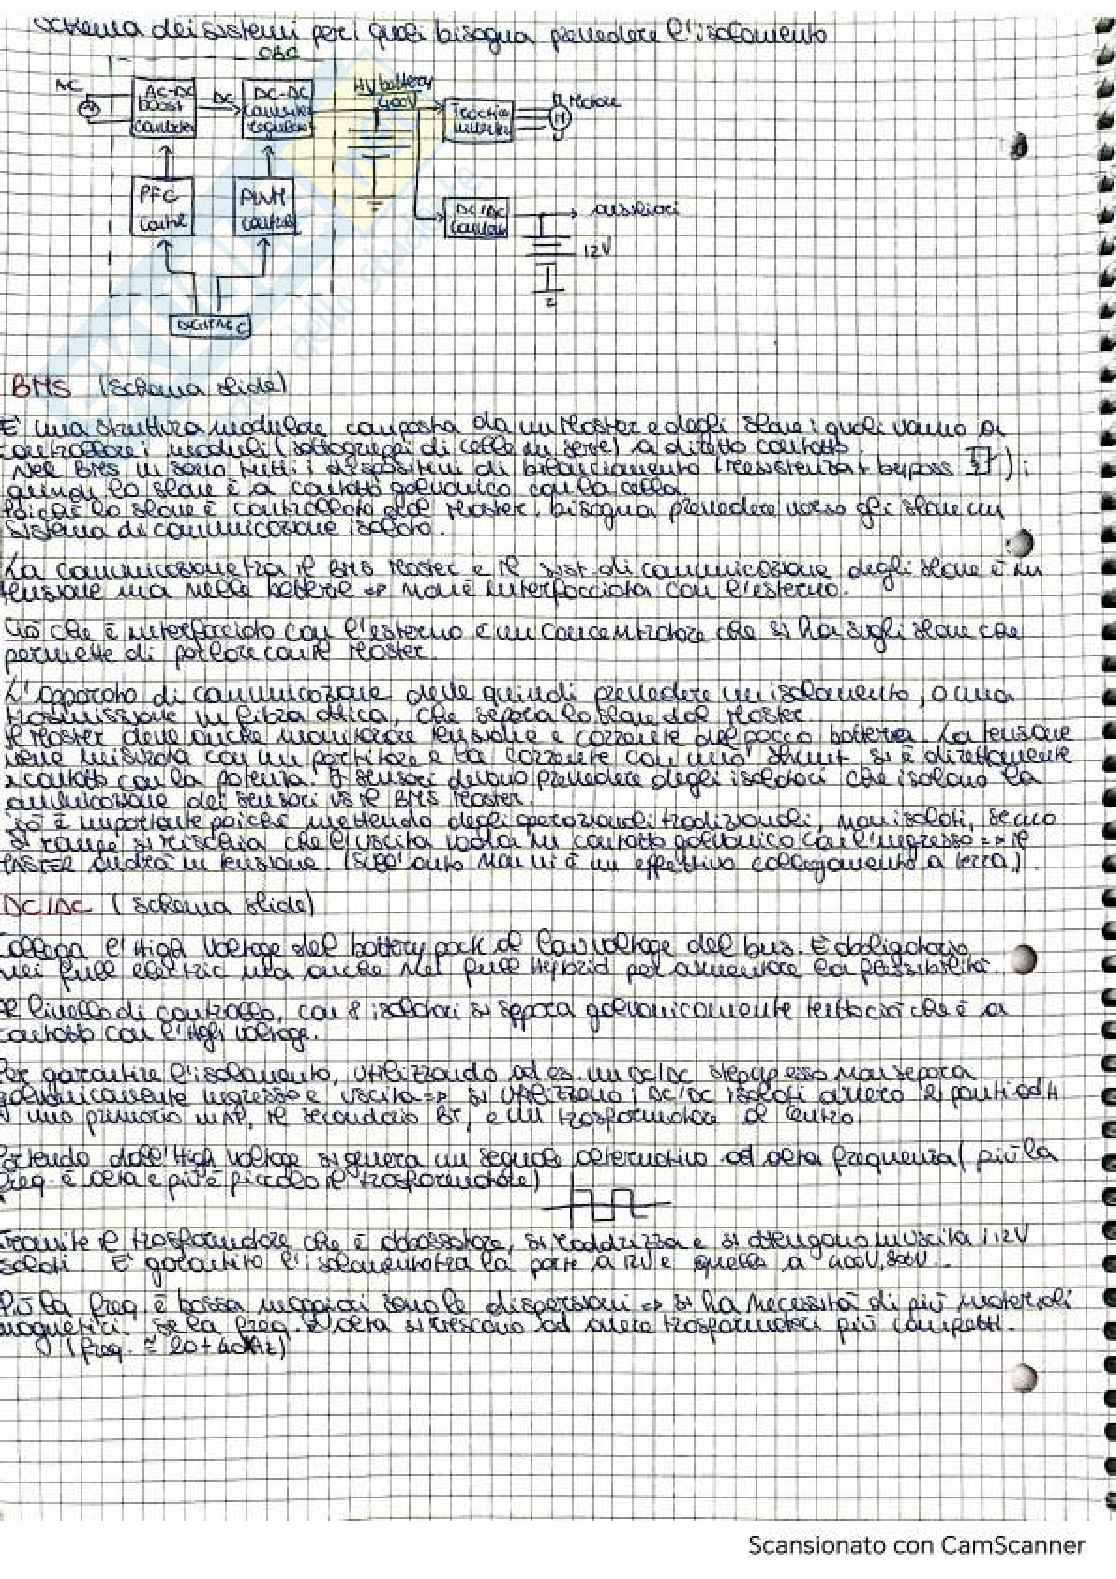 Schema dei sistemi per i quali bisogna prevedere l'isolamento
OBC
AC
AC-DC
boost
converter
DC
DC-DC
converter
regulator
HV battery
400V
Traction
inverter
Motore
M
PFC
control
PWM
control
DC/DC
converter
ausiliari
12V
BMS (schema slide)
E' una struttura modulare composta da un Master e degli slave i quali vanno a
controllare i moduli (sottogruppi di celle in serie) a diretto contatto.
Nel BMS vi sono tutti i dispositivi di bilanciamento (resistenza + bypass );
quindi lo slave è a contatto galvanico con la cella.
Poiché lo slave è controllato dal Master, bisogna prevedere verso gli slave un
sistema di comunicazione isolato.
La comunicazione tra il BMS Master e il sist. di comunicazione degli slave è in
tensione ma nelle batterie => non è interfacciata con l'esterno.
Ciò che è interfacciato con l'esterno è un concentratore che si ha sugli slave che
permette di parlare con il Master.
L'apparato di comunicazione deve quindi prevedere un isolamento, o una
trasmissione in fibra ottica, che separa lo slave dal Master.
Il Master deve anche monitorare tensione e corrente del pacco batteria. La tensione
viene misurata con un partitore e la corrente con uno shunt si è direttamente
a contatto con la potenza. I sensori devono prevedere degli isolatori che isolano la
comunicazione dei sensori vs il BMS Master.
Ciò è importante poiché mettendo degli operazionali tradizionali, non isolati, se uno
si rompe si rischia che l'uscita vada in contatto galvanico con l'ingresso => il
MASTER andrà in tensione. (Sull'auto non vi è un effettivo collegamento a terra.)
DC/DC (schema slide)
Collega l'High Voltage del battery pack al low voltage del bus. È obbligatorio
nei full electric ma anche nel full Hybrid per aumentare la possibilità.
Al livello di controllo, con 8 isolatori si separa galvanicamente tutto ciò che è a
contatto con l'High voltage.
Per garantire l'isolamento, utilizzando ad es. un DC/DC step up esso non separa
galvanicamente ingresso e uscita => si utilizzano i DC/DC isolati ovvero 2 ponti ad H
uno primario in AT, il secondario BT, e un trasformatore al centro.
Partendo dall'High voltage si genera un segnale alternativo ad alta frequenza (più la
freq. è alta e più è piccolo il trasformatore)
Tramite il trasformatore che è abbassatore, si raddrizza e si ottengono in uscita i 12V
isolati. E' garantito l'isolamento tra la parte a 12V e quella a 400V, 800V..
Più la freq. è bassa maggiori sono le dispersioni => si ha necessità di più materiali
magnetici. Se la freq. è alta si riescono ad avere trasformatori più compatti.
(freq. ≅ 20÷40kHz)
Scansionato con CamScanner